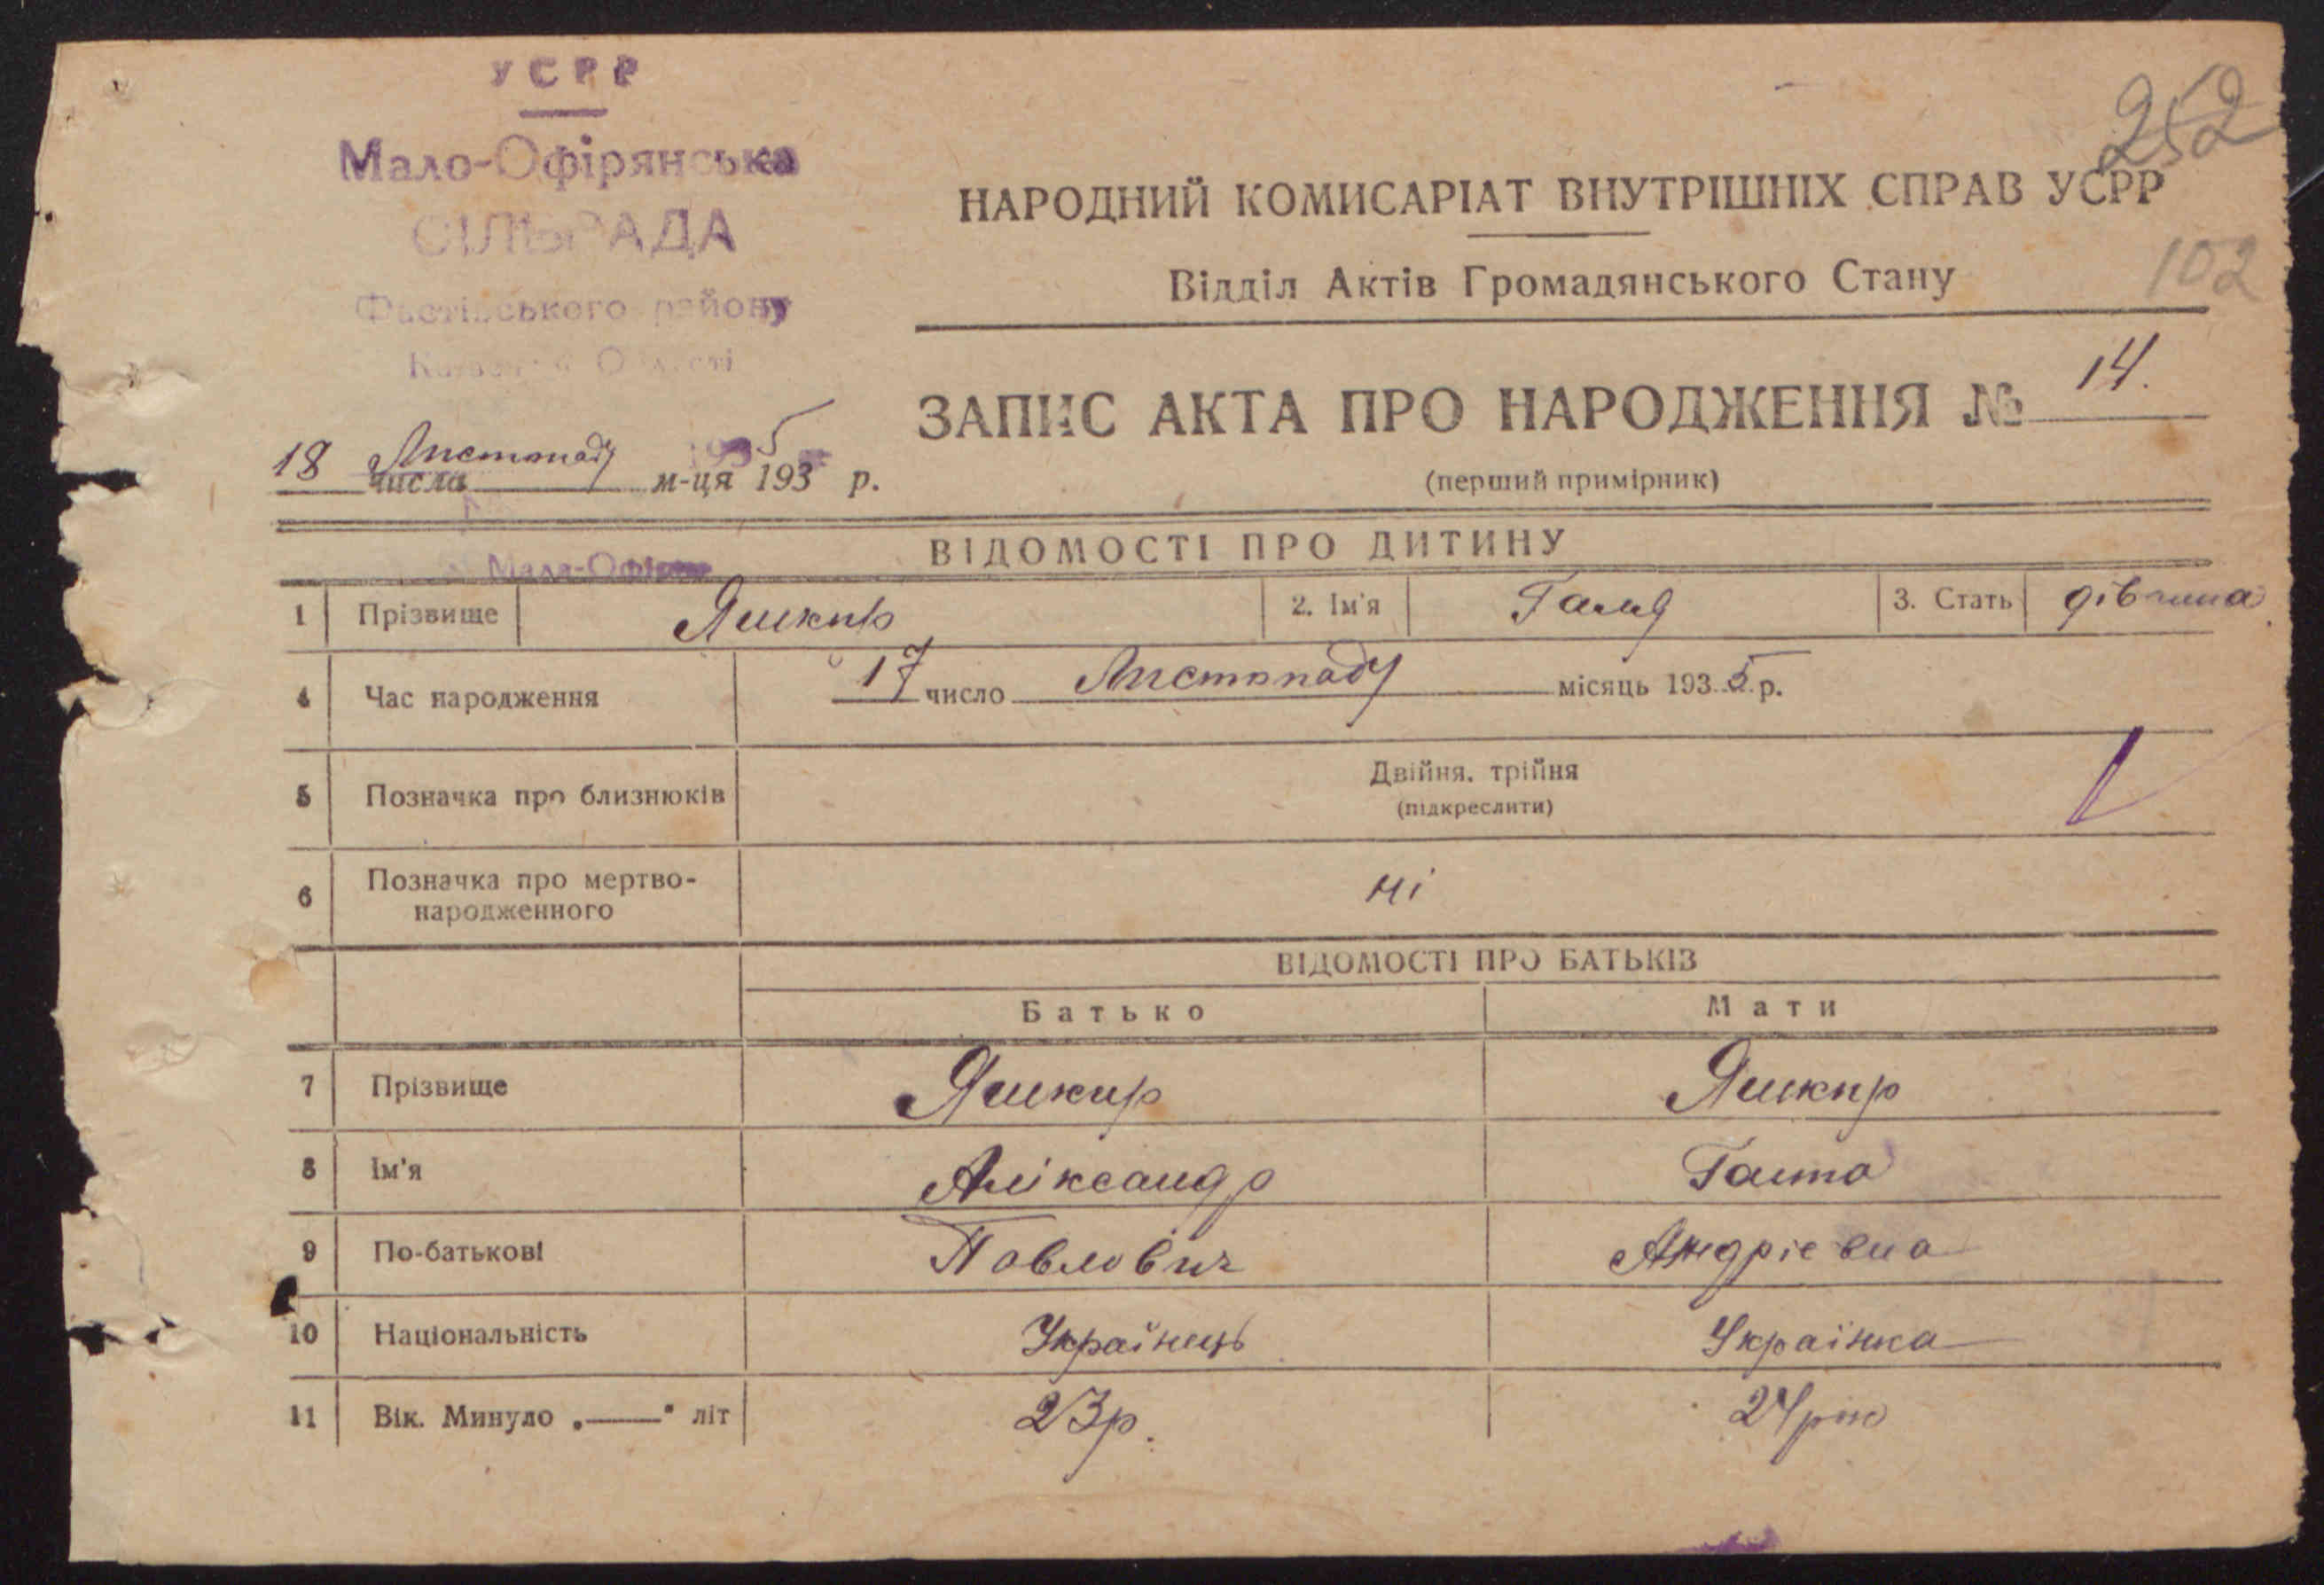 УСРР
Мало-Офірянська
СІЛЬРАДА
Фастівського району
252
НАРОДНИЙ КОМИСАРІАТ ВНУТРІШНІХ СПРАВ УСРР
Відділ Актів Громадянського Стану
102
ЗАПИС АКТА ПРО НАРОДЖЕННЯ № 14.
(перший примірник)
18 числа Листопаду м-ця 1935 р.
ВІДОМОСТІ ПРО ДИТИНУ
1 Прізвище Яшкир 2. Ім'я Галя 3. Стать дівчина
4 Час народження 17 число Листопаду місяць 1935 р.
5 Позначка про близнюків Двійня, трійня
(підкреслити)
6 Позначка про мертво-
народженного ні
ВІДОМОСТІ ПРО БАТЬКІВ
Батько Мати
7 Прізвище Яшкир Яшкир
8 Ім'я Аліксандр
9 По-батькові Павлович Андрієвна
10 Національність Українець Українка
11 Вік. Минуло „——" літ 23р. 24